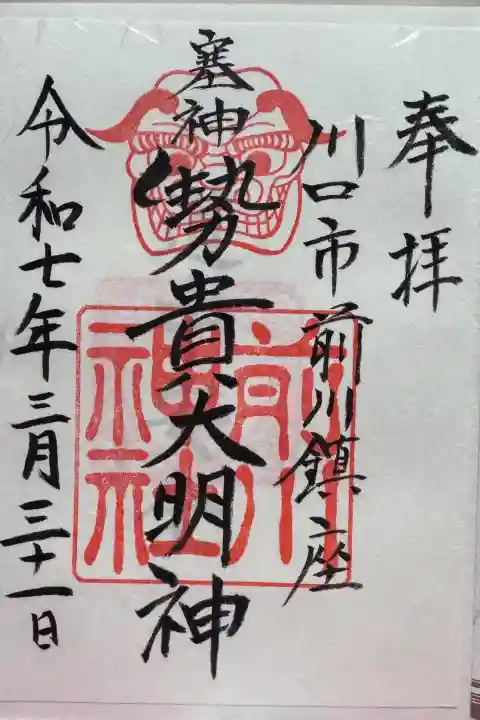 奉拝
川口市前川鎮座
塞神
勢貴大明神
令和七年三月三十一日
前川神社